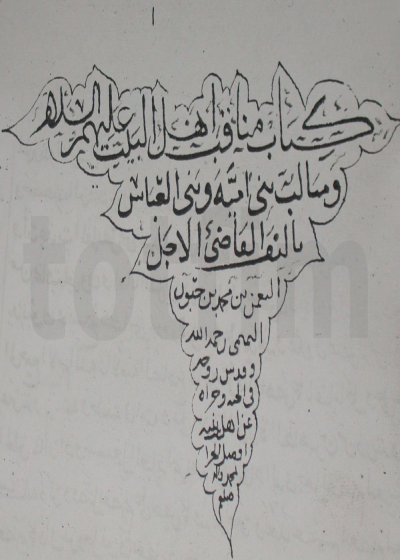 كتاب مناقب اهل البيت عليهم السلام
ومثالب بني امية وبني العباس
تاليف القاضي الاجل
النعمن بن محمد بن حيون
التميمي رحمه الله
وقدس روحه
في الجنة وجزاه
عن اهل بيته
افضل الجزا
بمحمد واله
صلعم